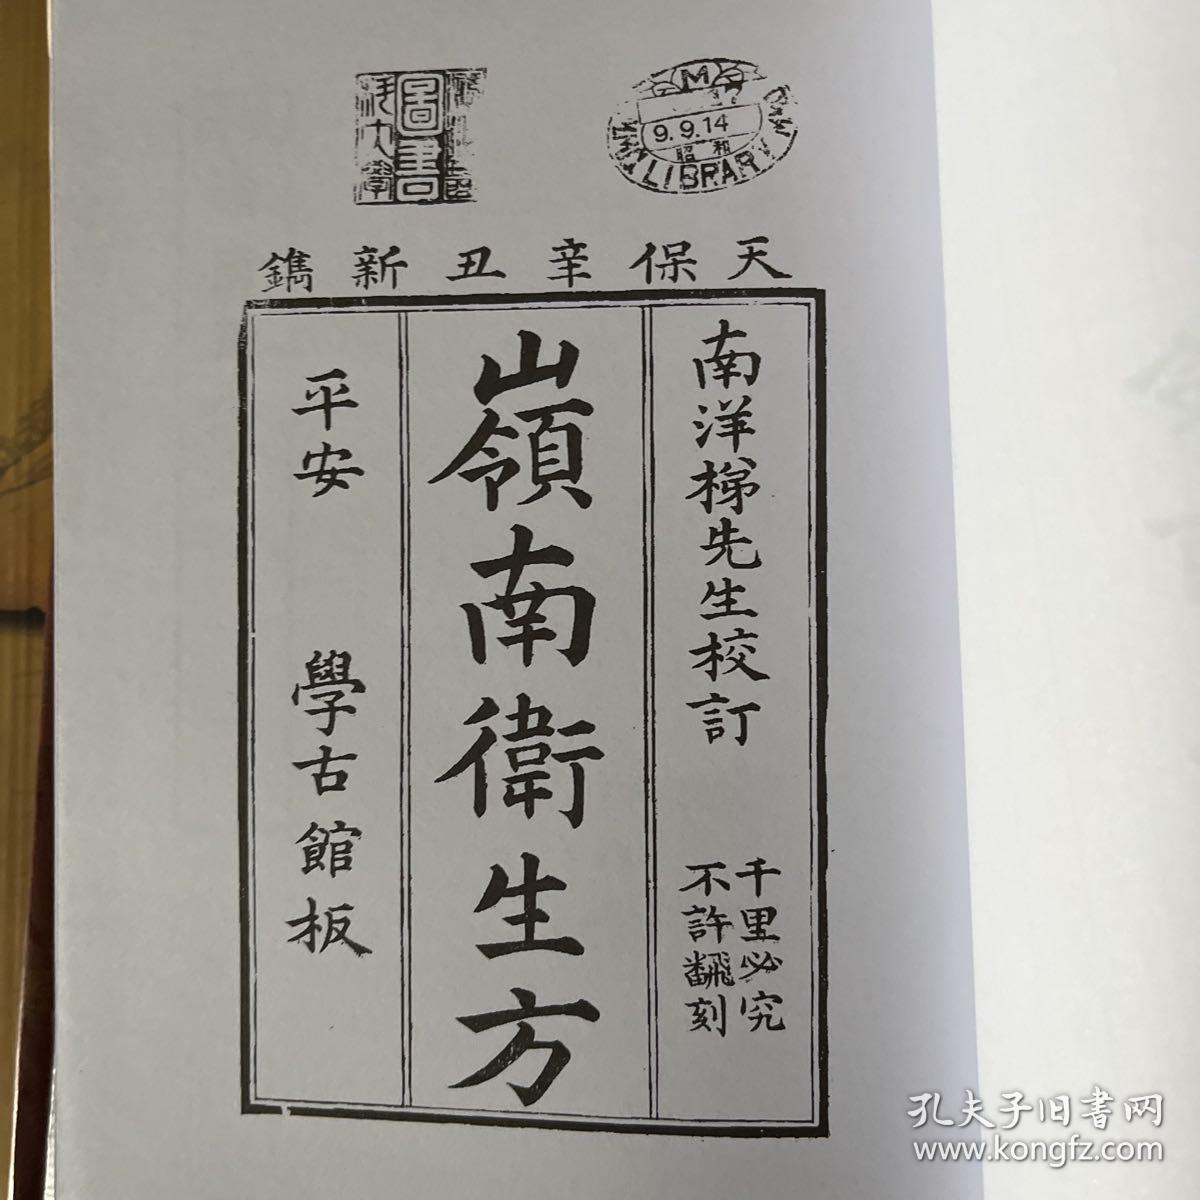 圖書
9.9.14
昭和
LIBRAR
天保辛丑新鐫
南洋梯先生校訂
千里必究
不許飜刻
嶺南衛生方
平安 學古館板
孔夫子旧書网
www.kongfz.com